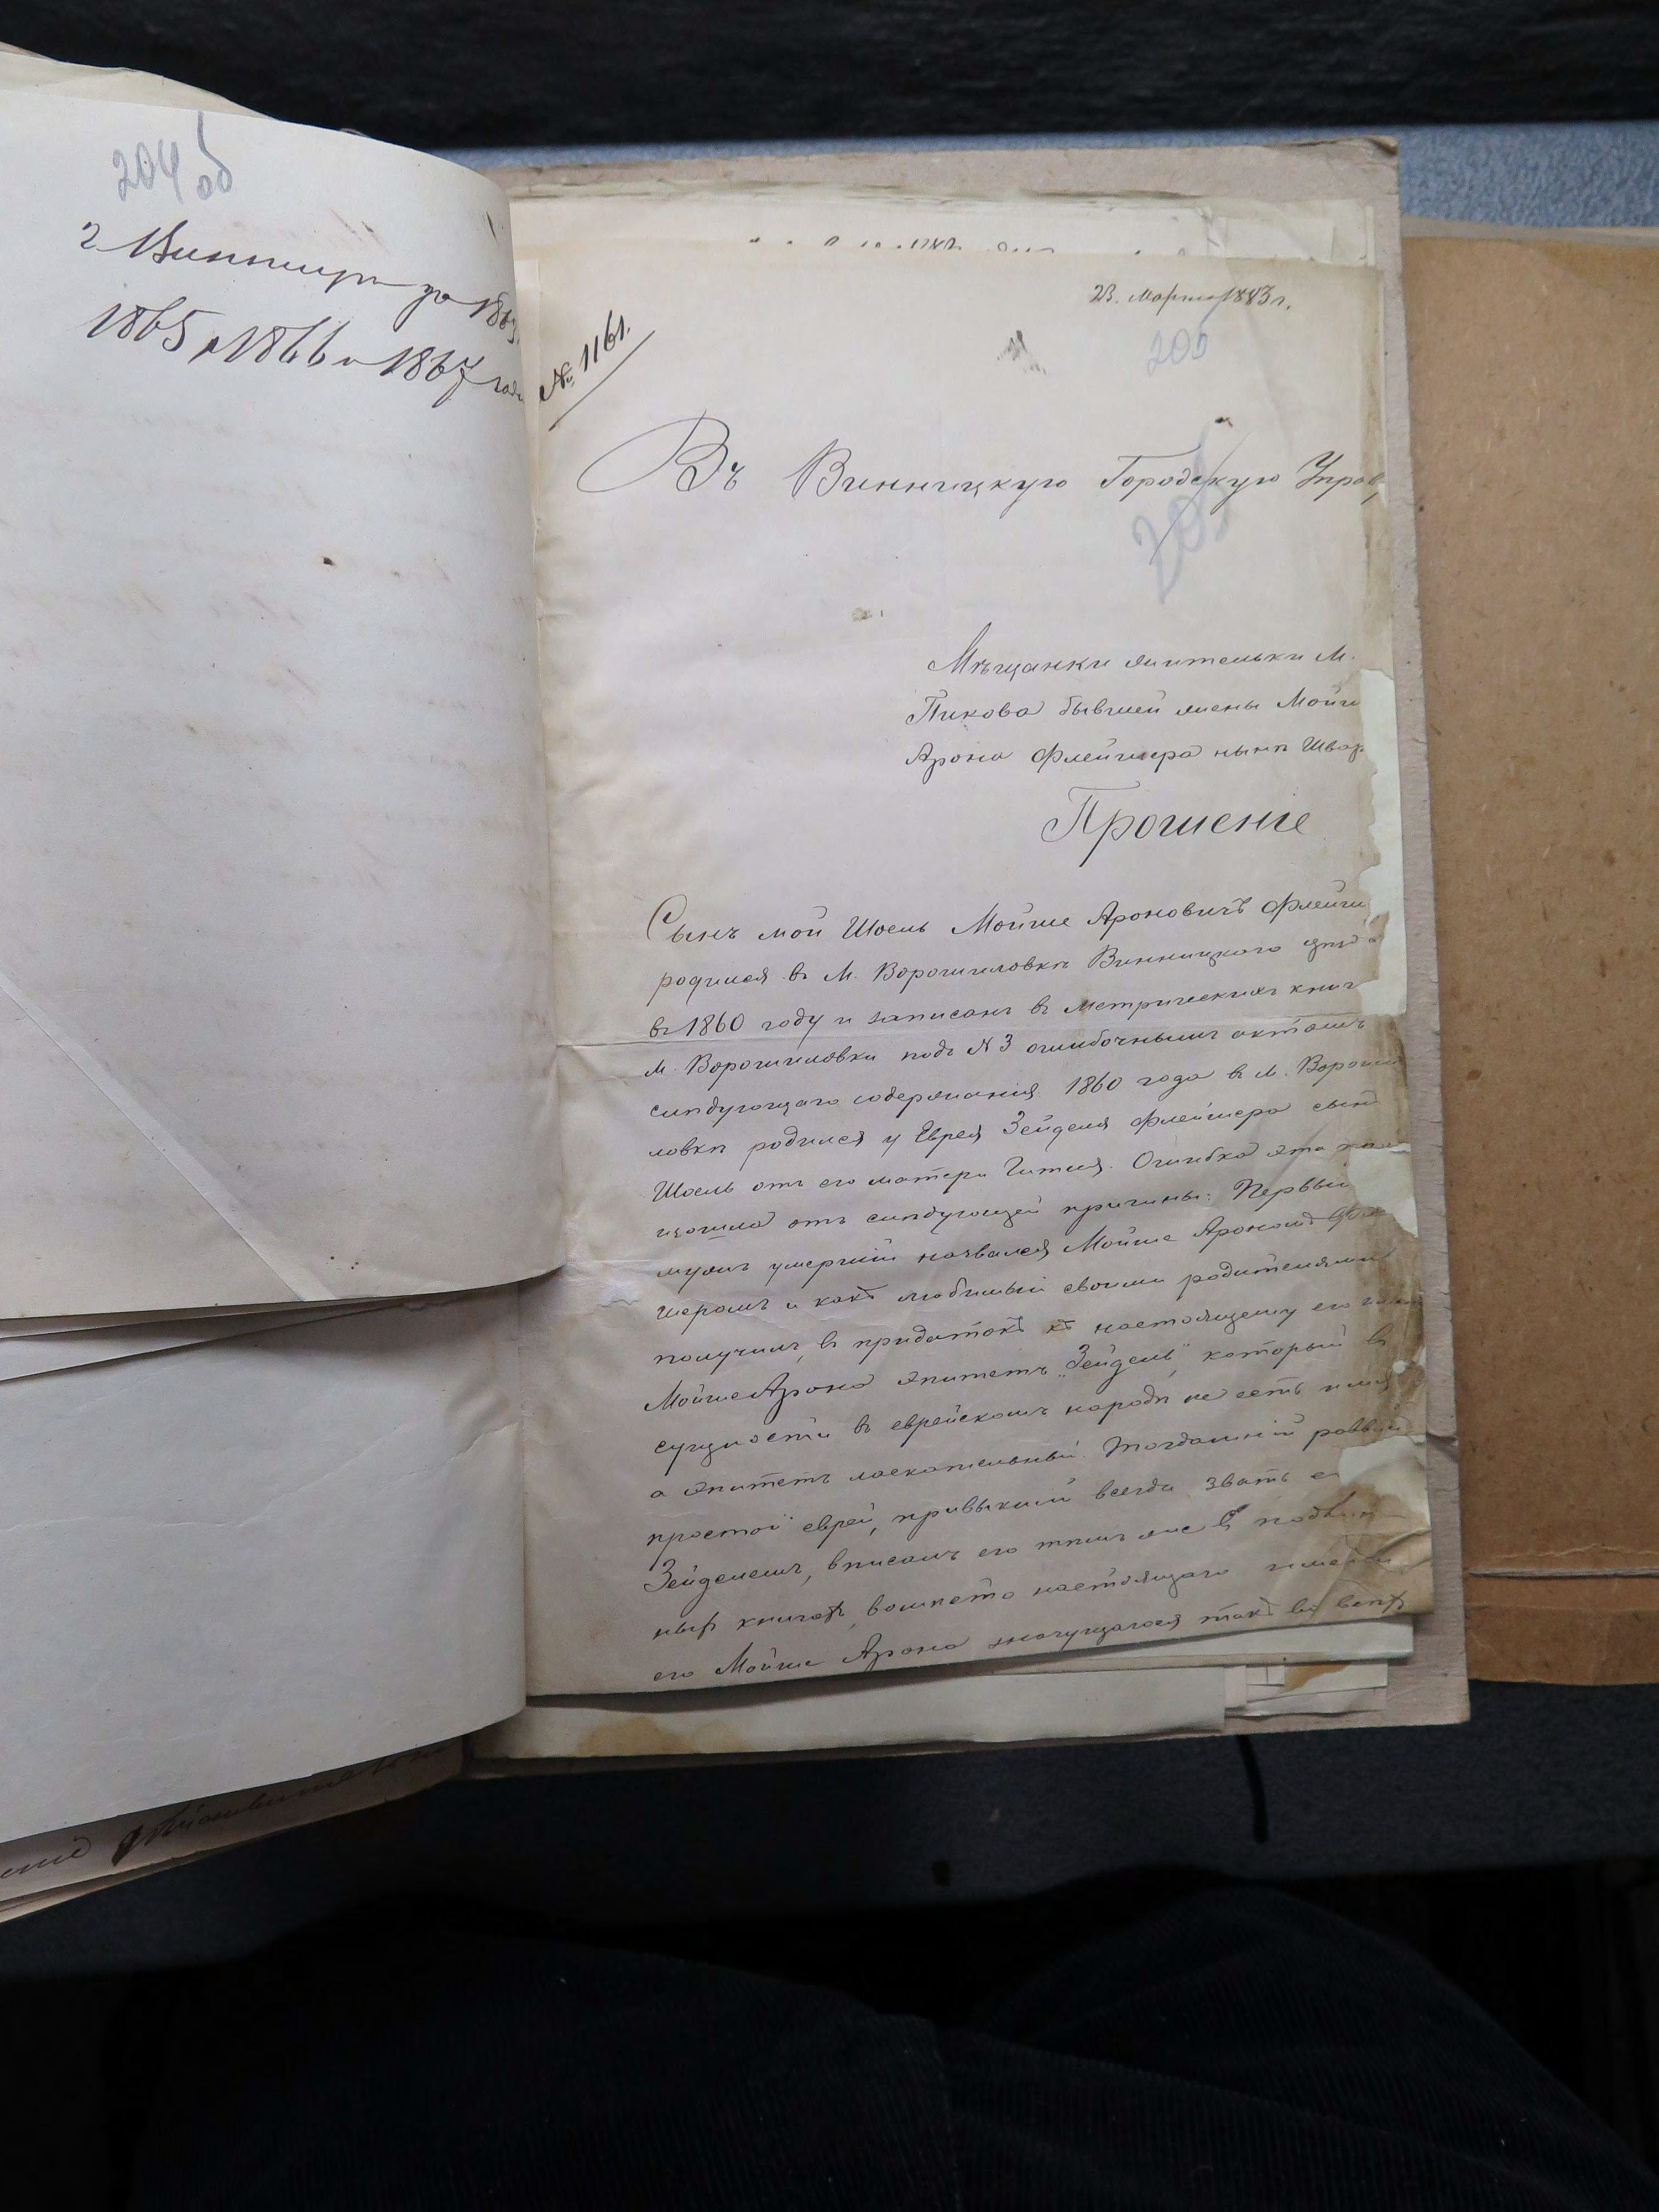 204 об
г Винницы за 1863
1865, 1866 и 1867 годы
23. Марта 1883 г.
№ 1161.
205
Въ Винницкую Городскую Управ
205
Мѣщанки жительки М.
Пикова бывшей жены Мойш
Арона Флейшера нынѣ Швар
Прошеніе
Сынъ мой Шоель Мойше Ароновичъ Флейш
родился въ М. Ворошиловкѣ Винницкого уѣзда
въ 1860 году и записанъ въ метрическихъ книг
м. Ворошиловки подъ N 3 ошибочнымъ актомъ
слѣдующаго содержанія 1860 года въ м. Вороши
ловкѣ родился у Еврея Зейделя Флейшера сынъ
Шоель отъ его матери Гитли. Ошибка эта
изошла отъ слѣдующей причины: Первый
мужъ умершій назвался Мойше Арономъ Флей
шеромъ и какъ любимый своими родителями
получилъ, въ придатокъ къ настоящему его
Мойше Арона эпитетъ „Зейдель" который въ
сущности въ еврейскомъ народѣ не есть имя
а эпитетъ ласкательный. Тогдашній раввин
простой еврей, привыкшій всегда звать е
Зейделемъ, вписалъ его тѣмъ же в
ныхъ книгахъ, вомѣсто настоящаго имени
его Мойше Арона значущагося такъ во всѣхъ